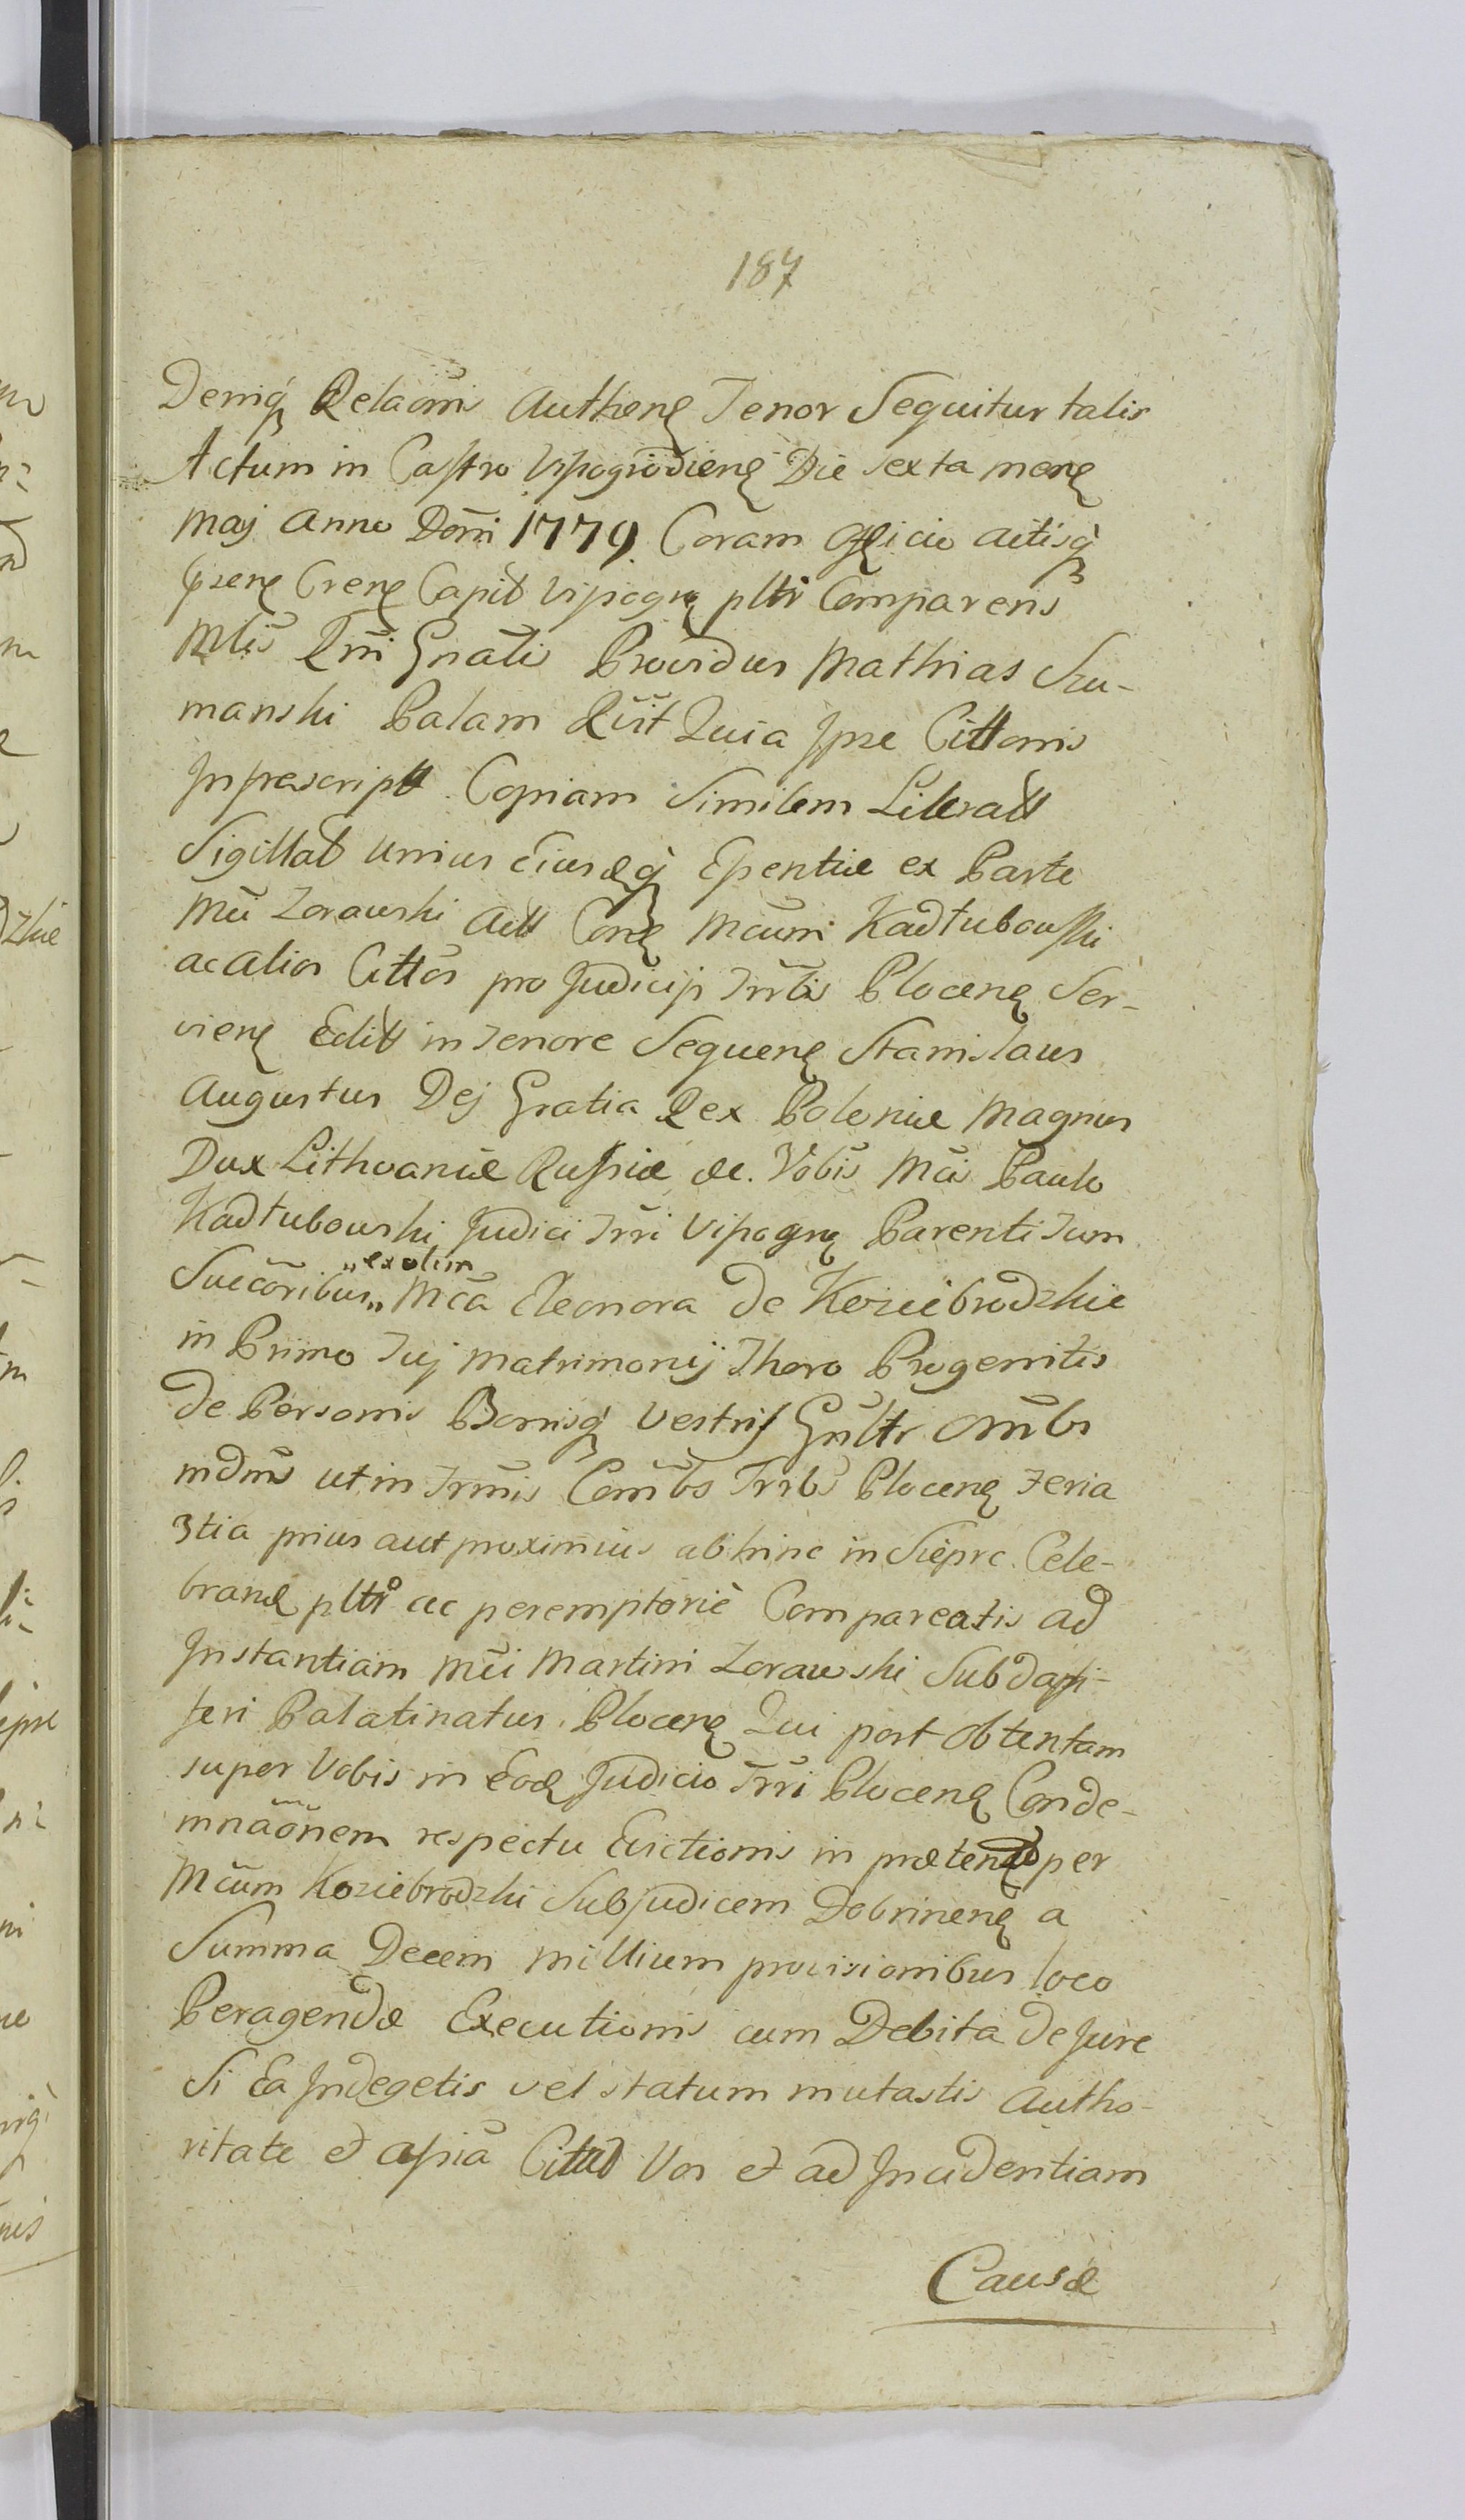 187
Deniq Relaõnis Authene Tenor Sequitur talis
Actum in Castro Vyssogrodiene Die Sexta mene
Maj Anno Dõni 1779. Coram Officio actisq
psene Crene Capit Vissogrne pltr Comparens
Mlis Rni Gnãlis Providus Mathias Szu-
manski Palam Rvit Quia Ipse Cittonis
Inprescriptt Copiam Similem Literatt
Sigillatt unius Eiusdeq Epentiæ ex Parte
Mci Zorawski Actt Cone Mcum Kadłubowski
ac alios Cittos pro Judicijs Trrlis Plocene Ser-
viene Editt in Tenore Sequene Stanislaus
Augustus Dej Gratia Rex Poloniæ Magnus
Dux Lithvaniæ Russiæ &c. Vobis Mcis Paulo
Kadłubowski Judici Trri Vissogrne Parenti Tum
Succõribus „ex olim„ Mca Eleonora de Koziebrodzkie
in Primo Suj Matrimonij Thoro Progenitis
de Personis Bonisq Vestris Gnltr omñbs
mdms ut in Trmis Comñbs Trrlbs Plocene Feria
3tia prius aut proximius abhinc in Sieprc Cele-
brane pltr ac peremptorie Compareatis ad
Instantiam Mci Martini Zorawski Subdapi-
feri Palatinatus Plocene Qui post obtentam
super Vobis in Eode Judicio Trri Plocene Conde-
mnãõnem respectu Evictionis in prætene per
Mcum Koziebrodzki Subjudicem Dobrinene a
Summa Decem Millium provisionibus loco
Peragendæ Executionis cum Debita de Jure
Si Ea Indegetis vel statum mutastis Autho-
ritate et apiã Citat Vos et ad Incidentiam
Causæ